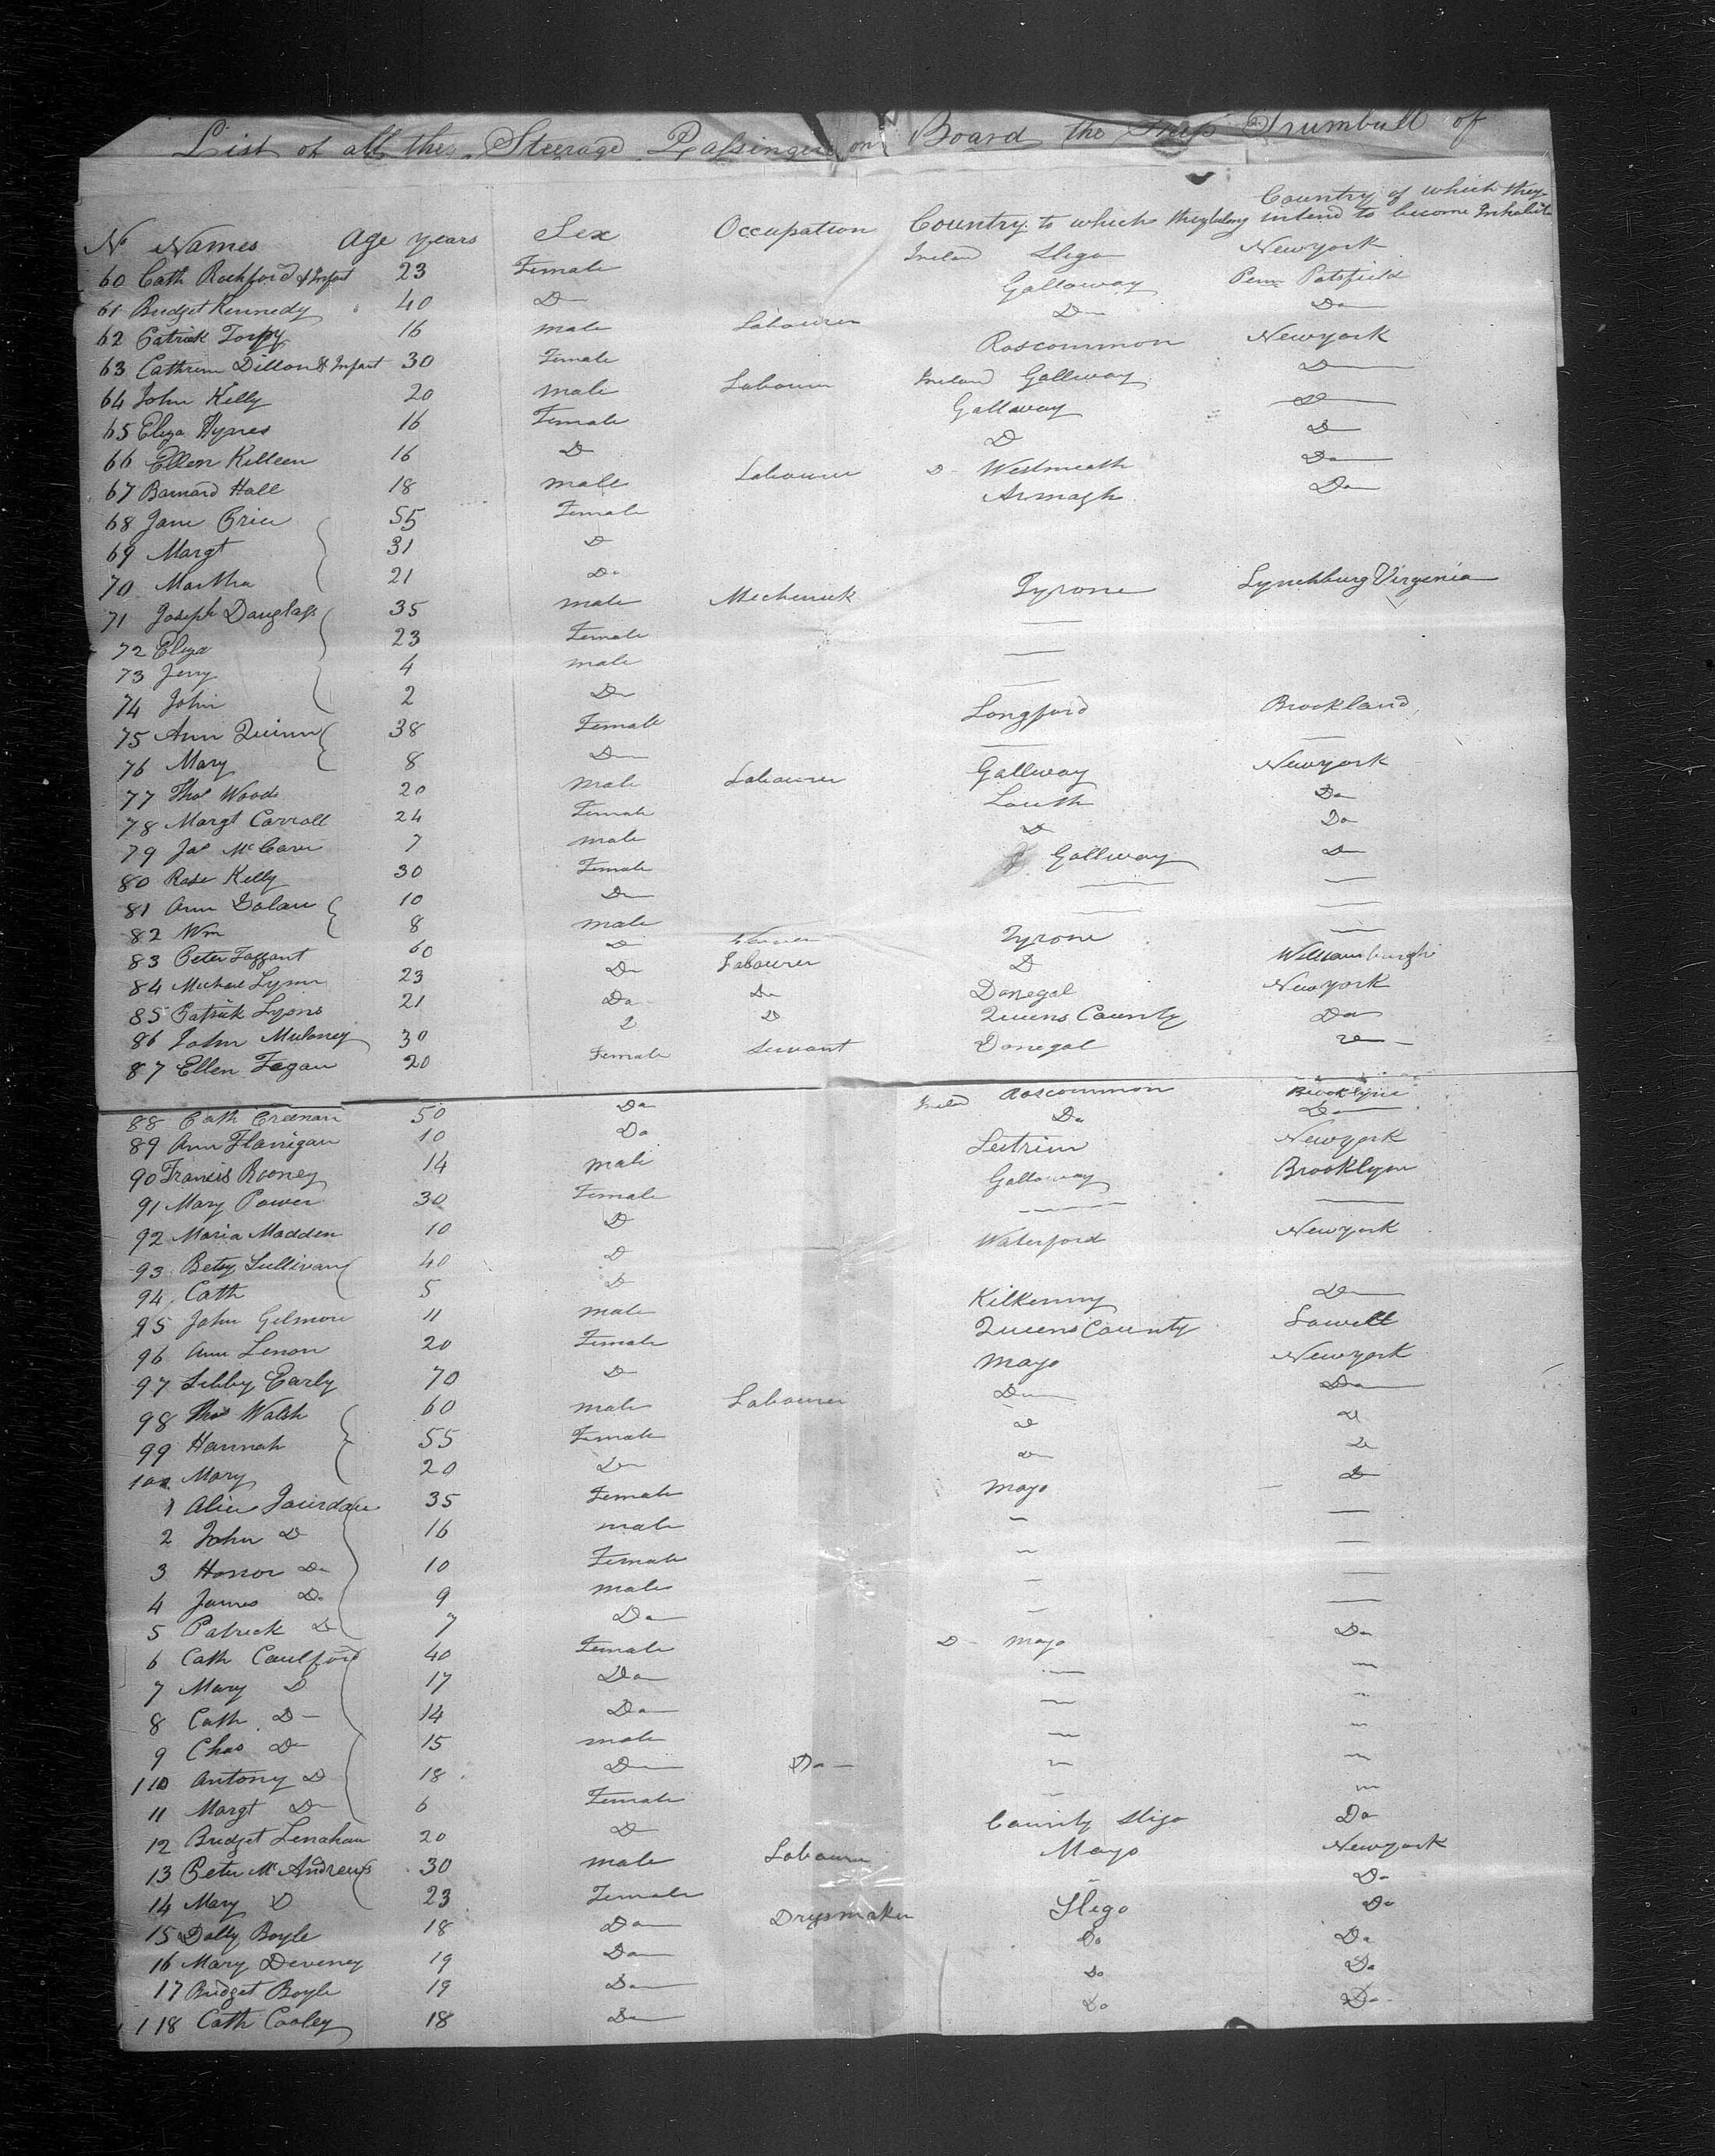 List of all the Steerage Passingers on Board the Ship Trumbull of
No Names Age years Sex Occupation Country to which they belong Country of which they intend to become Inhabit
60 Cath Rochford & Infant 23 Female Ireland Sligo Newyork
61 Bridget Kennedy 40 D Gallaway Penn
62 Patrick Torpy 16 male Labourer Do Do
63 Cathrine Dillon & Infant 30 Female Roscommon Newyork
64 John Kelly 20 male Labourer Ireland Gallway D
65 Eliza Hynes 16 Female Gallaway D
66 Ellen Killeen 16 D D D
67 Barnard Hall 18 male Labourer D Westmeath Do
68 Jane Brice 55 Female Armagh Do
69 Margt 31 D
70 Martha 21 Do
71 Joseph Douglass 35 male Mechenick Tyrone Lynchburg Virginia
72 Eliza 23 Female —
73 Jerry 4 male —
74 John 2 Do —
75 Ann Quinn 38 Female Longford Brookland
76 Mary 8 Do — —
77 Thos Woods 20 male Labourer Gallway Newyork
78 Margt Carroll 24 Female Louth Do
79 Jas McCave 7 male D Do
80 Rose Kelly 30 Female Gallway D
81 Ann Dolan 10 Do — —
82 Wm 8 male — —
83 Peter Taggart 60 D Tyrone —
84 Micheal Lynn 23 Do Labourer D Williamsburgh
85 Patrick Lyons 21 Do Do Donegal Newyork
86 John Muloney 30 D D Queens County Do
87 Ellen Fagan 20 Female servant Donegal D
88 Cath Creenan 50 Do Ireld Roscommon Brooklyne
89 Ann Flanigan 10 Do Do Do
90 Francis Rooney 14 male Leitrim Newyork
91 Mary Power 30 Female Gallaway Brooklyne
92 Maria Madden 10 D — —
93 Betsy Sullivan 40 D Waterford Newyork
94 Cath 5 D
95 John Gilmore 11 male Kilkenny Do
96 Ann Lenon 20 Female Queens County Lowell
97 Sibby Early 70 D mayo Newyork
98 Thos Walsh 60 male Labourer Do Do
99 Hannah 55 Female D D
100 Mary 20 Do D D
1 Alice Jourdan 35 Female mayo D
2 John D 16 male — —
3 Honor Do 10 Female — —
4 James Do 9 male — —
5 Patrick D 7 Do — —
6 Cath Caulford 40 Female D mayo Do
7 Mary D 17 Do — —
8 Cath D 14 Do — —
9 Chas Do 15 male — —
110 Antony D 18 Do Do — —
11 Margt Do 6 Female — —
12 Bridget Lenahan 20 D County Sligo Do
13 Peter McAndrews 30 male Labourer Mayo Newyork
14 Mary D 23 Female — Do
15 Dolly Boyle 18 Do Dressmaker Sligo Do
16 Mary Deveney 19 Do Do Do
17 Bridget Boyle 19 Do Do Do
118 Cath Cooley 18 Do Do Do